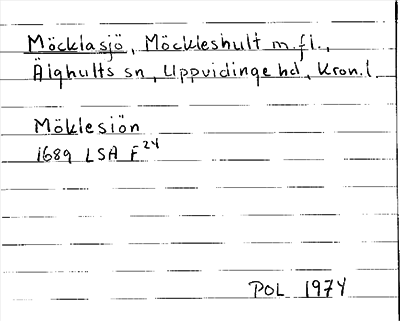 Möcklasjö, Möckleshult m.fl.,
Älghults sn, Uppvidinge hd, Kron.l.
Möklesiön
1689 LSA F²⁴
POL 1974